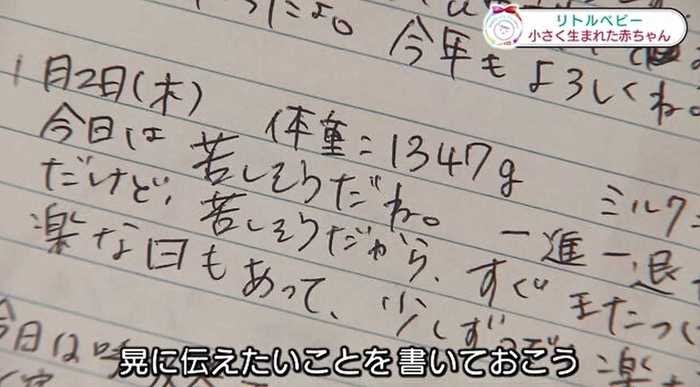 リトルベビー
小さく生まれた赤ちゃん
よ。今年もよろしくね。
1月2日(木) 体重:1347g ミルク
今日は苦しそうだね。一進一退
だけど、苦しそうだから、すぐ
楽な日もあって、少しず
今日は
晃に伝えたいことを書いておこう